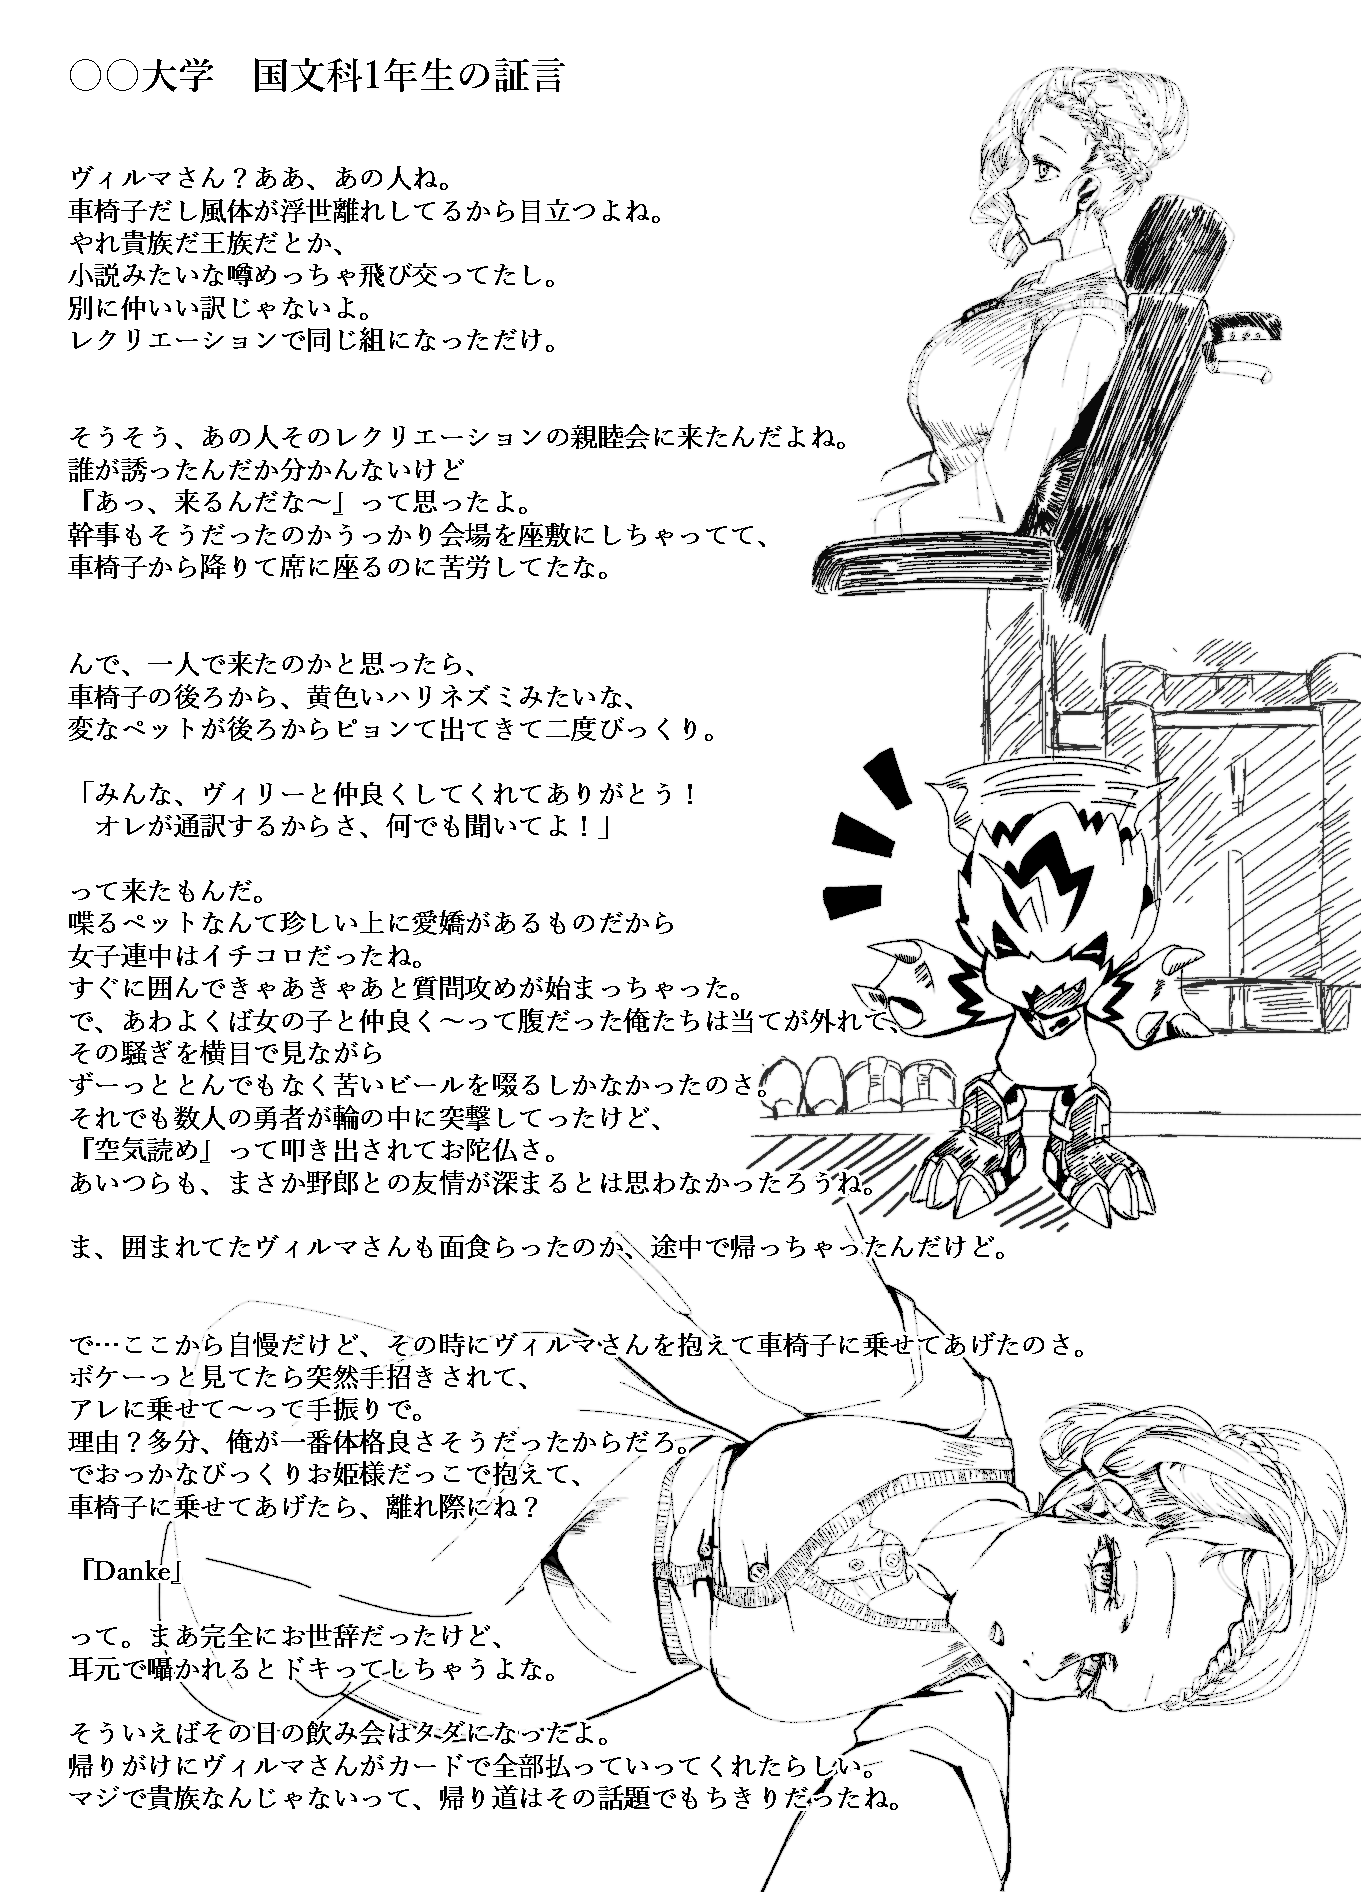 ○○大学　国文科1年生の証言
ヴィルマさん？ああ、あの人ね。
車椅子だし風体が浮世離れしてるから目立つよね。
やれ貴族だ王族だとか、
小説みたいな噂めっちゃ飛び交ってたし。
別に仲いい訳じゃないよ。
レクリエーションで同じ組になっただけ。
そうそう、あの人そのレクリエーションの親睦会に来たんだよね。
誰が誘ったんだか分かんないけど
『あっ、来るんだな～』って思ったよ。
幹事もそうだったのかうっかり会場を座敷にしちゃってて、
車椅子から降りて席に座るのに苦労してたな。
んで、一人で来たのかと思ったら、
車椅子の後ろから、黄色いハリネズミみたいな、
変なペットが後ろからピョンて出てきて二度びっくり。
「みんな、ヴィリーと仲良くしてくれてありがとう！
　オレが通訳するからさ、何でも聞いてよ！」
って来たもんだ。
喋るペットなんて珍しい上に愛嬌があるものだから
女子連中はイチコロだったね。
すぐに囲んできゃあきゃあと質問攻めが始まっちゃった。
で、あわよくば女の子と仲良く～って腹だった俺たちは当てが外れて、
その騒ぎを横目で見ながら
ずーっととんでもなく苦いビールを啜るしかなかったのさ。
それでも数人の勇者が輪の中に突撃してったけど、
『空気読め』って叩き出されてお陀仏さ。
あいつらも、まさか野郎との友情が深まるとは思わなかったろうね。
ま、囲まれてたヴィルマさんも面食らったのか、途中で帰っちゃったんだけど。
で…ここから自慢だけど、その時にヴィルマさんを抱えて車椅子に乗せてあげたのさ。
ボケーっと見てたら突然手招きされて、
アレに乗せて～って手振りで。
理由？多分、俺が一番体格良さそうだったからだろ。
でおっかなびっくりお姫様だっこで抱えて、
車椅子に乗せてあげたら、離れ際にね？
『Danke』
って。まあ完全にお世辞だったけど、
耳元で囁かれるとドキってしちゃうよな。
そういえばその日の飲み会はタダになったよ。
帰りがけにヴィルマさんがカードで全部払っていってくれたらしい。
マジで貴族なんじゃないって、帰り道はその話題でもちきりだったね。